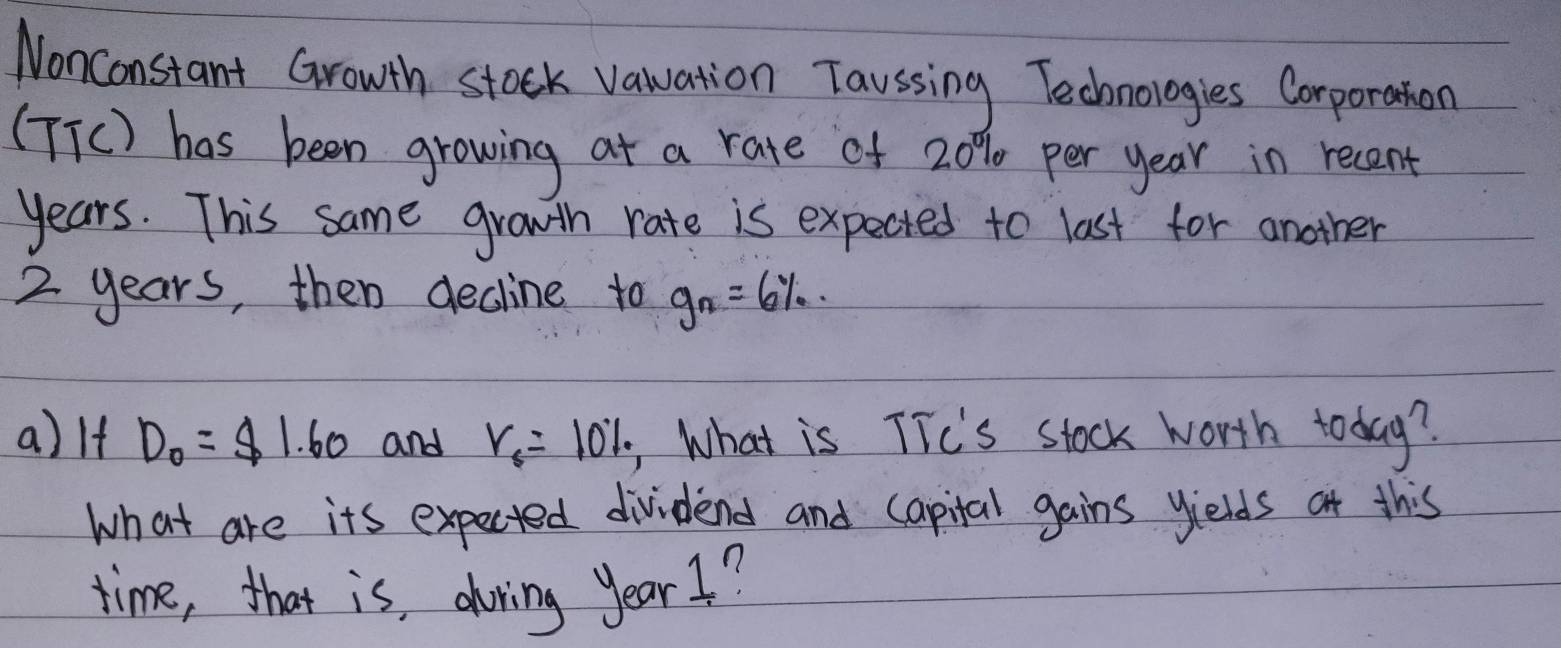 Nonconstant Growth stock Valuation Taussing Technologies Corporation
(TTC) has been growing at a rate of 20% per year in recent
years. This same growth rate is expected to last for another
2 years, then decline to gₙ = 6%.
a) If D₀ = $ 1.60 and rₛ = 10%, What is TTC's stock worth today?
What are its expected dividend and capital gains yields at this
time, that is, during Year 1?